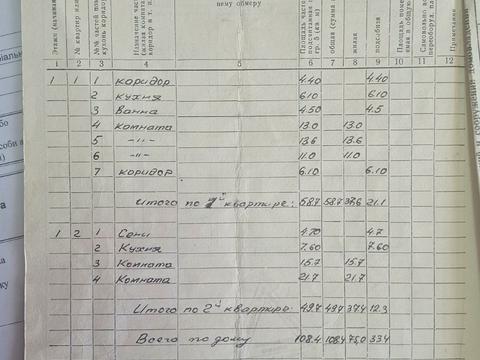 нему обмеру
Этажи (начиная
№ квартир
№№ частей
кухонь коридор
Назначение част
(жилая комната
коридор и т. п.
Площадь част
подсчитанная п
гр. 5 (кв. м)
общая (сумма
жилая
подсобная
Площадь поме
в общую
Самовольно
переоборуд.
Примечание
1 2 3 4 5 6 7 8 9 10 11 12
1 1 1 коридор 4.40 4.40
2 кухня 6.10 6.10
3 Ванна 4.50 4.5
4 комната 13.0 13.0
5 -„- 13.6 13.6
6 -„- 11.0 11.0
7 коридор 6.10 6.10
Итого по 1й квартире: 58.7 58.7 37.6 21.1
1 2 1 Сени 4.70 4.7
2 Кухня 7.60 7.60
3 Комната 15.7 15.7
4 Комната 21.7 21.7
Итого по 2й квартире: 49.7 49.7 37.4 12.3
Всего по дому 108.4 108.4 75.0 33.4